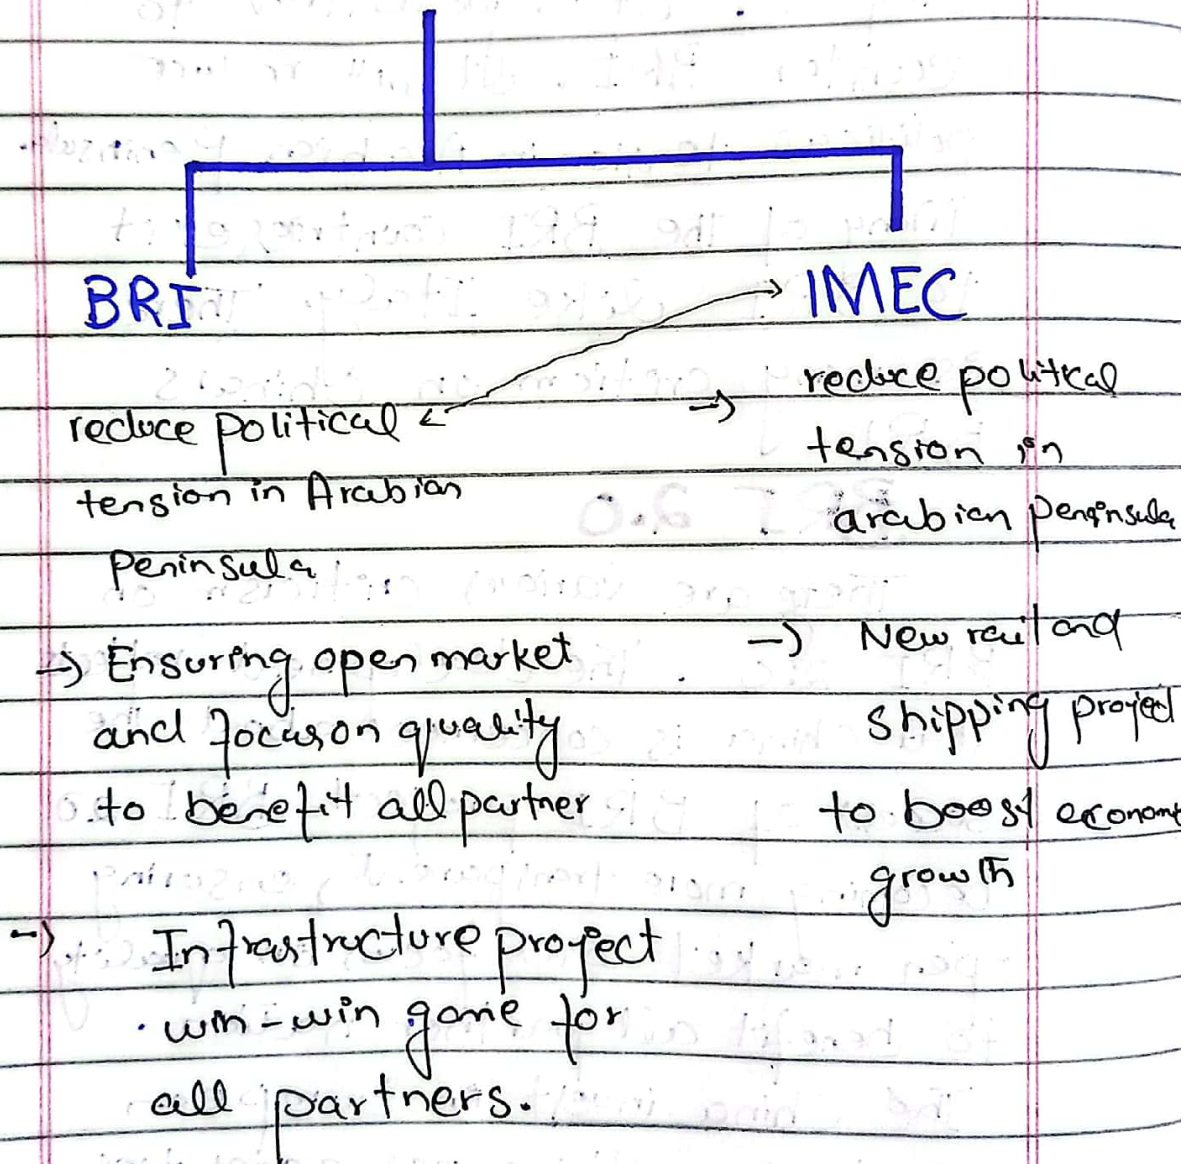 BRI
reduce political
tension in Arabian
Peninsula
→ Ensuring open market
and focus on quality
to benefit all partner
→ Infrastructure project
win-win game for
all partners.
IMEC
→ reduce political
tension in
arabian Peninsula
→ New rail and
shipping project
to boost econom
growth